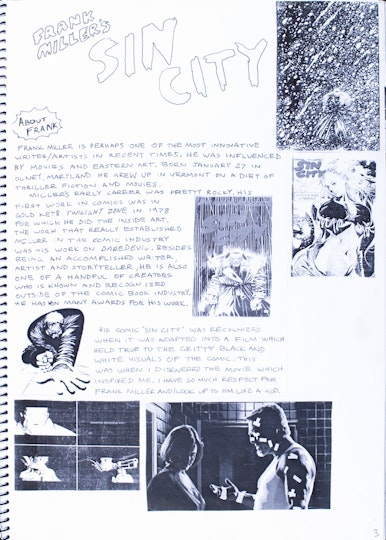 FRANK
MILLER'S
SIN
CITY
ABOUT
FRANK
FRANK MILLER IS PERHAPS ONE OF THE MOST INNOVATIVE
WRITER/ARTISTS IN RECENT TIMES. HE WAS INFLUENCED
BY MOVIES AND EASTERN ART. BORN JANUARY 27 IN
OLNEY, MARYLAND HE GREW UP IN VERMONT ON A DIET OF
THRILLER FICTION AND MOVIES.
MILLER'S EARLY CAREER WAS PRETTY ROCKY, HIS
FIRST WORK IN COMICS WAS IN
GOLD KEYS TWILIGHT ZONE IN 1978
FOR WHICH HE DID THE INSIDE ART.
THE WORK THAT REALLY ESTABLISHED
MILLER IN THE COMIC INDUSTRY
WAS HIS WORK ON DAREDEVIL. BESIDES
BEING AN ACCOMPLISHED WRITER,
ARTIST AND STORYTELLER, HE IS ALSO
ONE OF A HANDFUL OF CREATORS
WHO IS KNOWN AND RECOGNIZED
OUTSIDE OF THE COMIC BOOK INDUSTRY.
HE HAS MANY AWARDS FOR HIS WORK.
SIN
CITY
HIS COMIC 'SIN CITY' WAS RECOGNIZED
WHEN IT WAS ADAPTED INTO A FILM WHICH
HELD TRUE TO THE GRITTY BLACK AND
WHITE VISUALS OF THE COMIC. THIS
WAS WHEN I DISCOVERED THE MOVIE WHICH
INSPIRED ME. I HAVE SO MUCH RESPECT FOR
FRANK MILLER AND LOOK UP TO HIM LIKE A GOD.
3